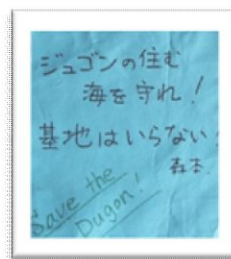 ジュゴンの住む
海を守れ！
基地はいらない！
森本
Save the
Dugon!